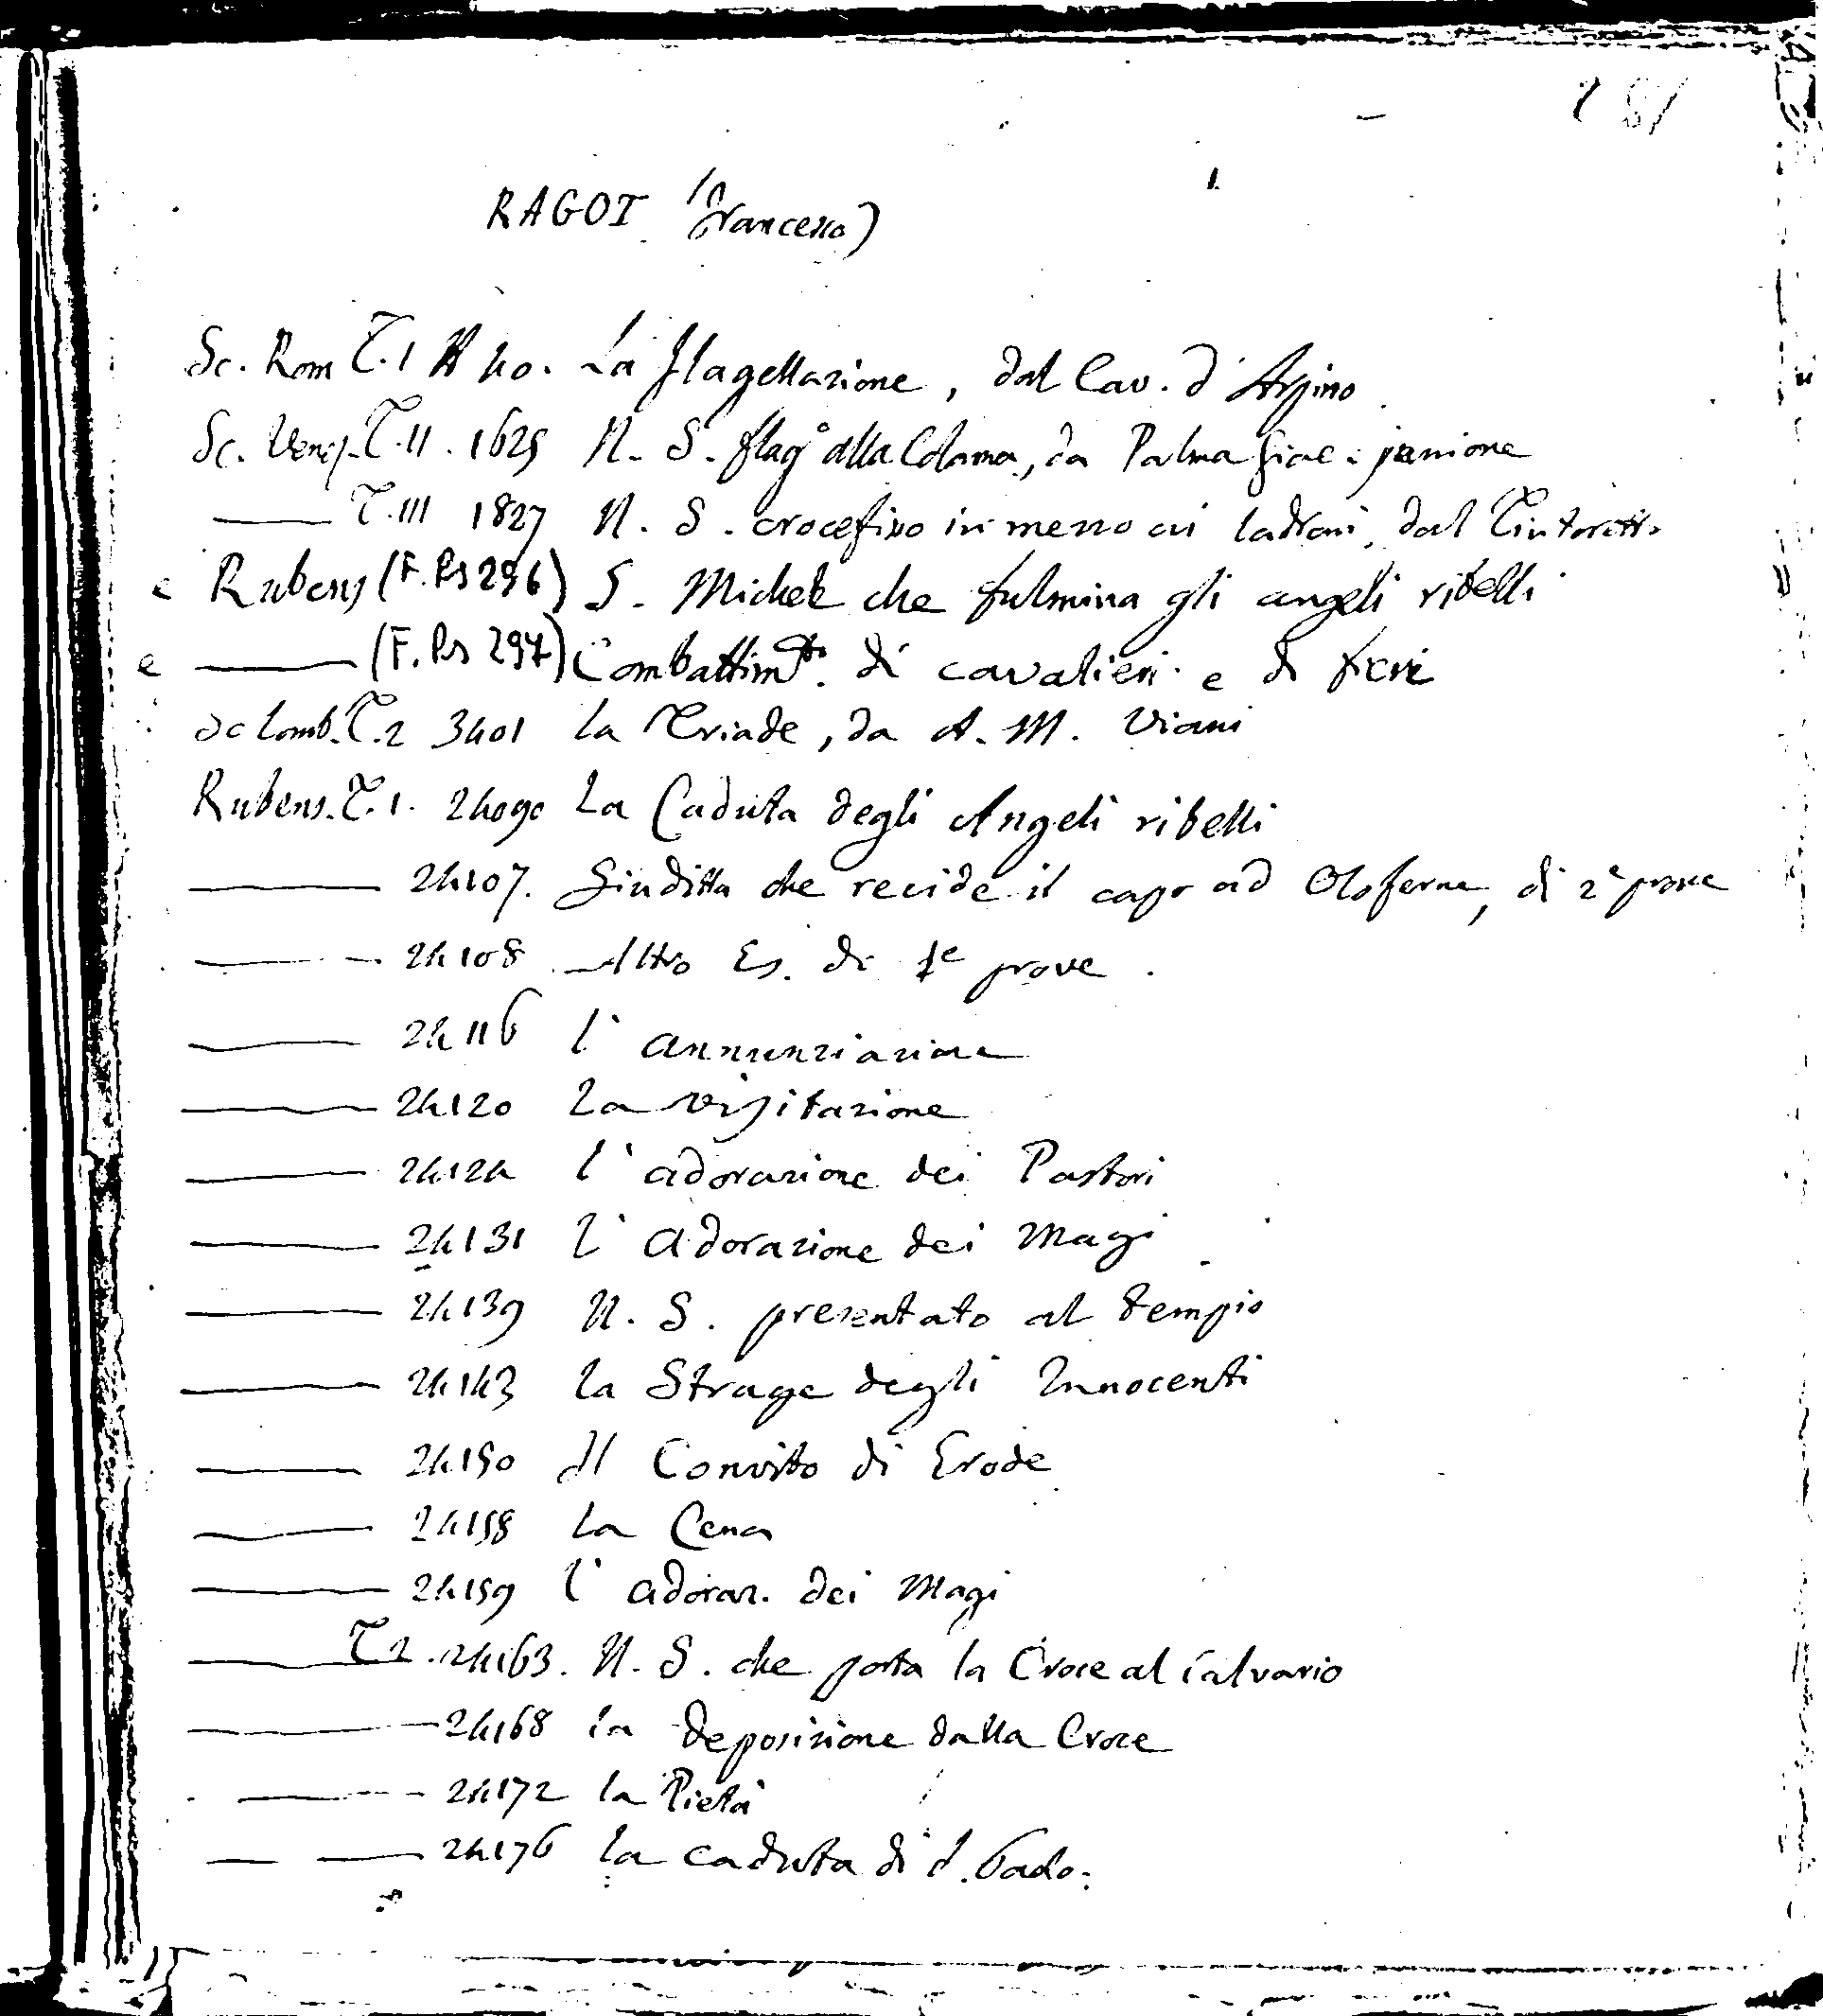 181
RAGOT (Francesco)
Sc. Rom T. 1 N 40. La flagellazione, dal Cav. d'Arpino
Sc. Venez. T. II. 1629 N. S. flag.º alla Colonna, da Palma Giac.
T. III 1827 N. S. crocefisso in mezzo ai ladroni, dal Tintoretto
e Rubens (F. Ps 296) S. Michele che fulmina gli angeli ribelli
e (F. Ps 297) Combattimto. di cavalieri e di fiere
Sc Lomb. T. 2 3401 la Triade, da A. M. Viani
Rubens. T. 1. 24090 La Caduta degli Angeli ribelli
24107. Giuditta che recide il capo ad Oloferne, di 2e prove
24108 Altro Es. di 1e prove.
24116 l'annunziazione
24120 La visitazione
24124 l'adorazione dei Pastori
24131 l'adorazione dei Magi
24139 N. S. presentato al tempio
24143 la Strage degli Innocenti
24150 Il Convito di Erode
24158 La Cena
24159 l'adoraz. dei Magi
T 2. 24163. N. S. che porta la Croce al Calvario
24168 la deposizione dalla Croce
24172 la Pietà
24176 la caduta di S.